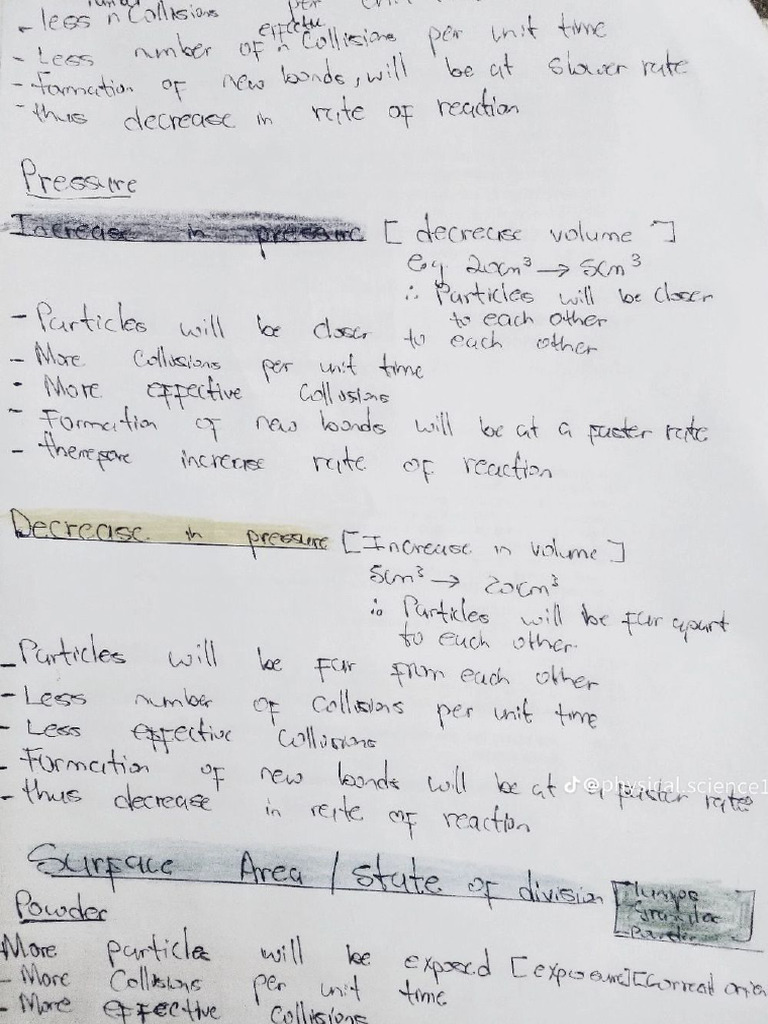 - less n Collisions per unit
effective
- Less number of n Collisions per unit time
- Formation of new bonds, will be at slower rate
- thus decrease in rate of reaction
Pressure
Increase in pressure [ decrease volume ]
eg 20cm³ → 5cm³
∴ Particles will be closer
to each other
- Particles will be closer to each other
- More Collisions per unit time
- More effective Collisions
- Formation of new bonds will be at a faster rate
- therefore increase rate of reaction
Decrease in pressure [Increase in volume]
5cm³ → 20cm³
∴ Particles will be far apart
to each other.
- Particles will be far from each other
- Less number of Collisions per unit time
- Less effective Collisions
- Formation of new bonds will be at a faster rate
@physical.science1
- thus decrease in rate of reaction
Surface Area / State of division
Lumps
Granules
Powder
Powder
More particles will be exposed [exposure] [Correct
- More Collisions per unit time
- More effective Collisions